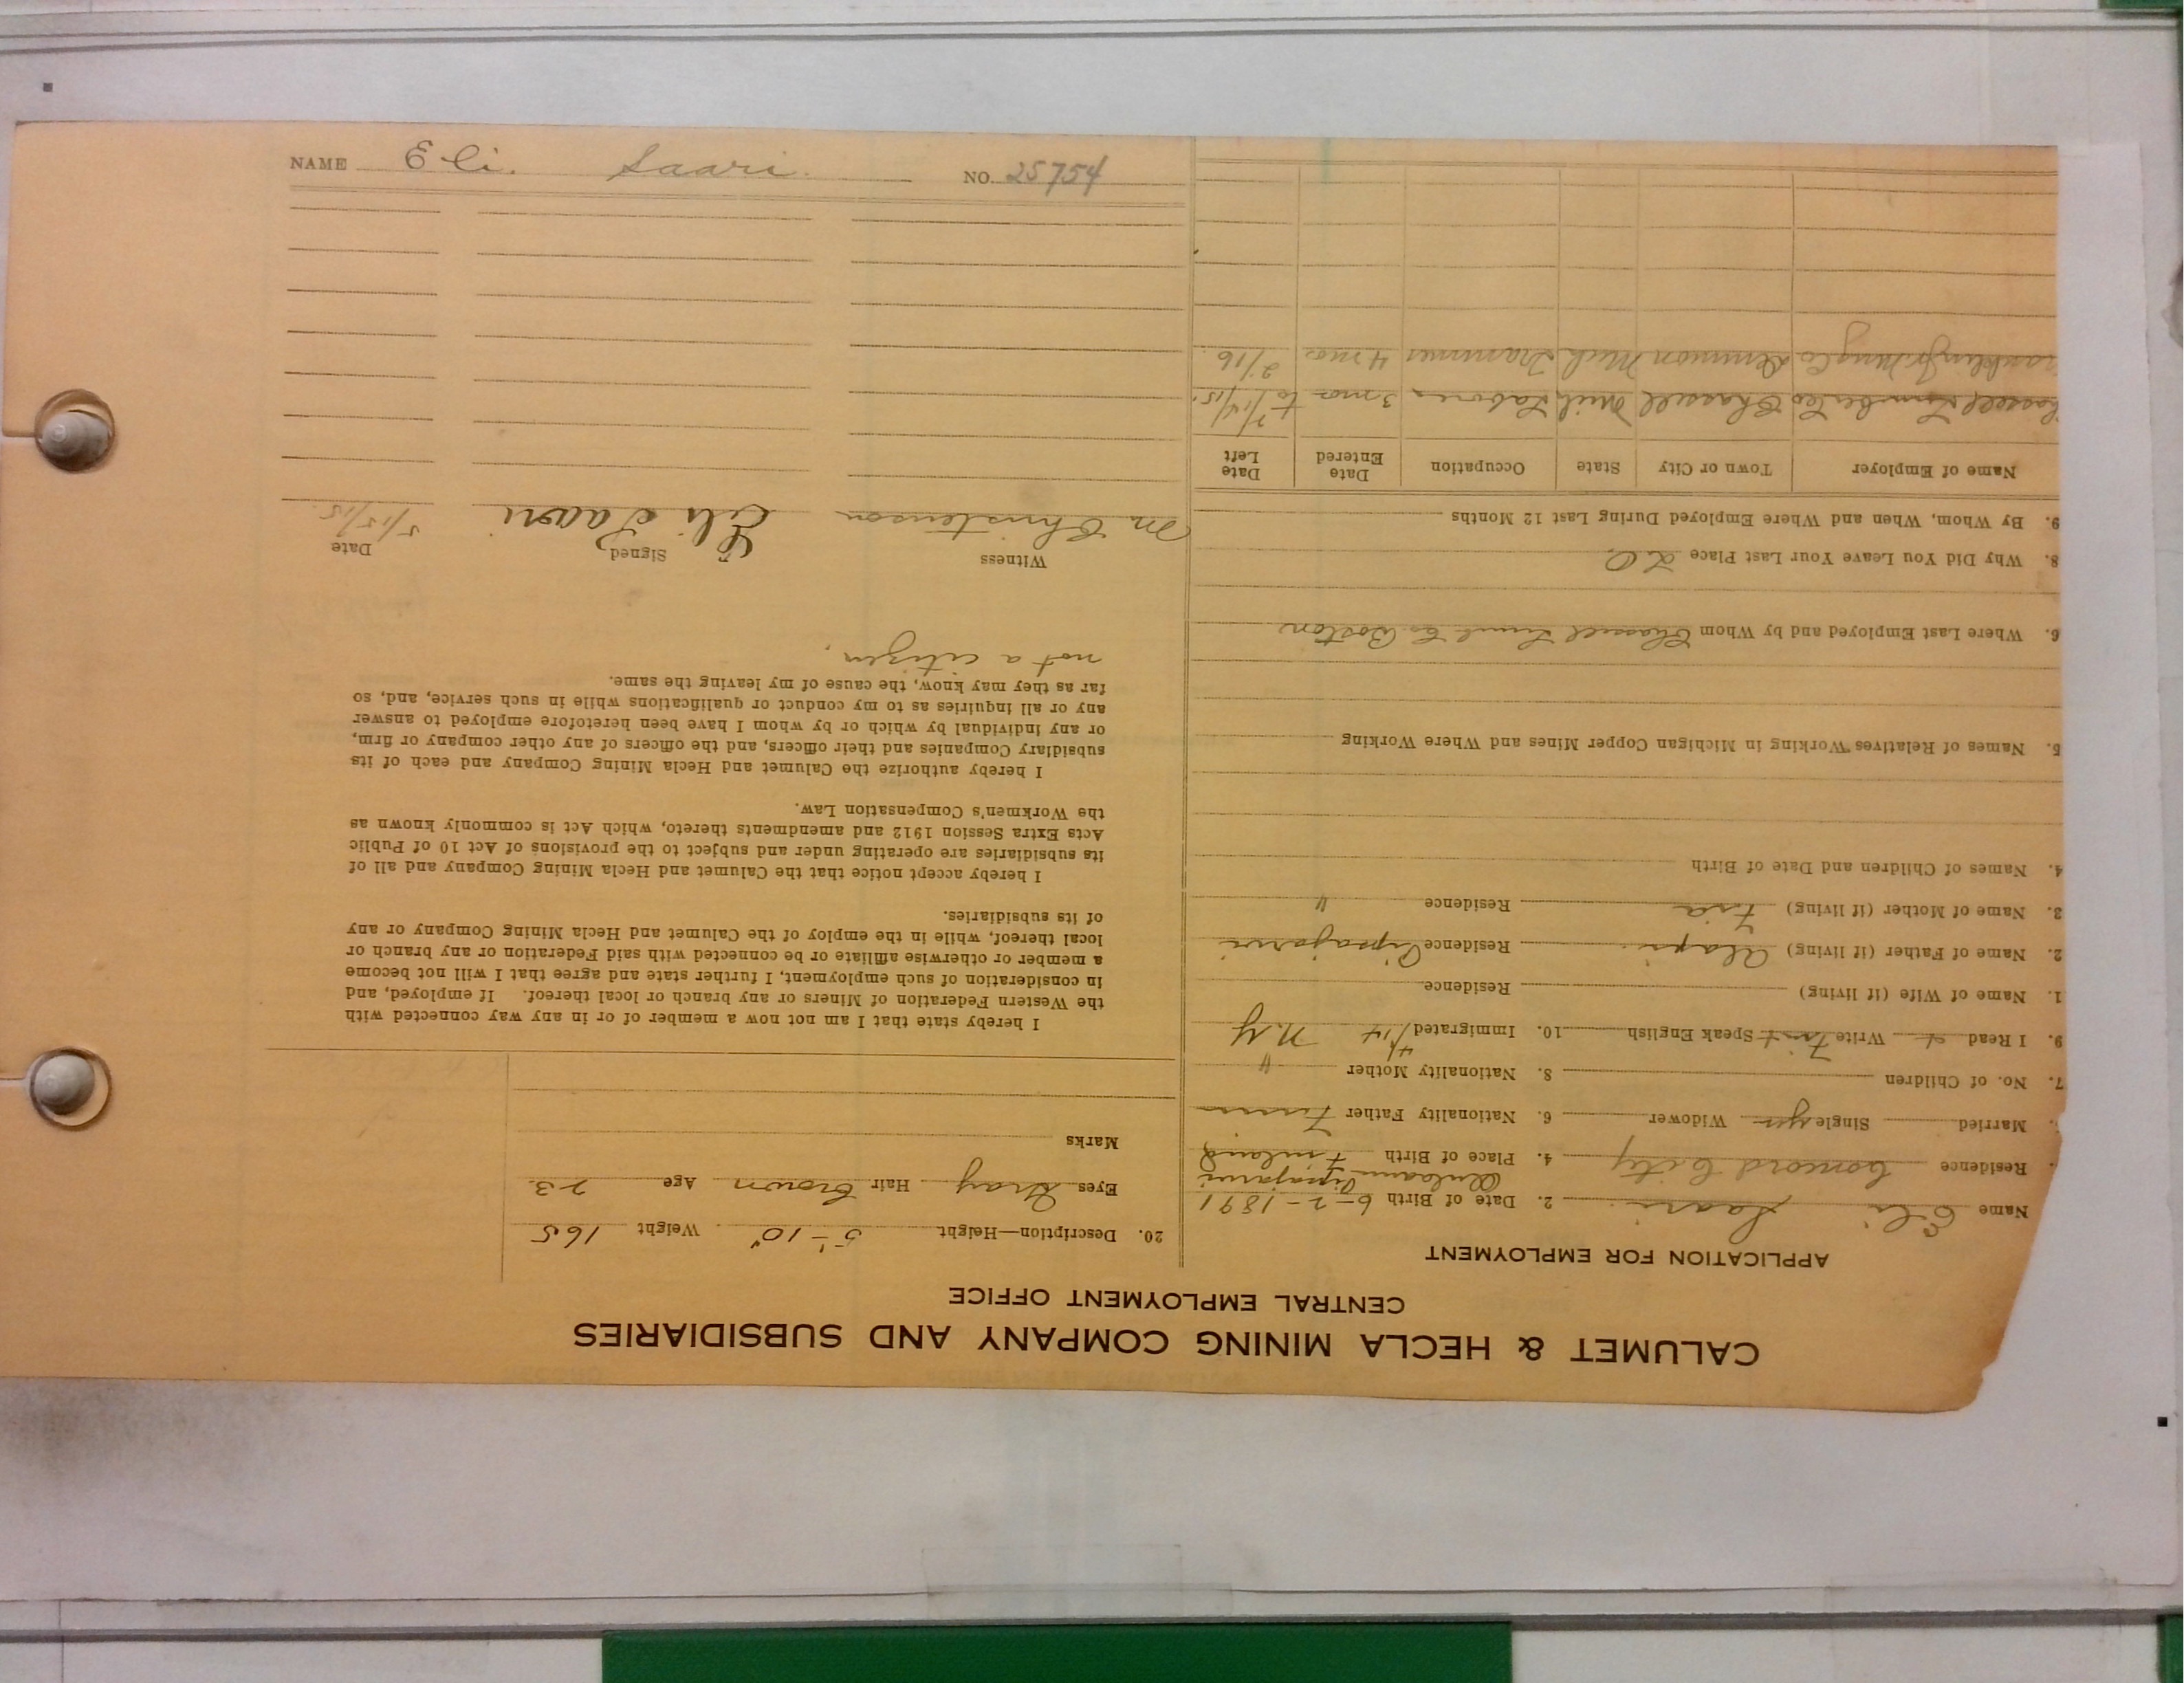 CALUMET & HECLA MINING COMPANY AND SUBSIDIARIES
CENTRAL EMPLOYMENT OFFICE
APPLICATION FOR EMPLOYMENT
Name Eli Saari 2. Date of Birth 6-2-1891
Residence Concord City 4. Place of Birth Finland
Married Single yes Widower 6. Nationality Father Finn
7. No. of Children 8. Nationality Mother "
9. I Read Write Speak English 10. Immigrated 4/14 N.Y
1. Name of Wife (if living) Residence
2. Name of Father (if living) Residence
3. Name of Mother (if living) Residence "
4. Names of Children and Date of Birth
5. Names of Relatives Working in Michigan Copper Mines and Where Working
6. Where Last Employed and by Whom Chassell Boston
8. Why Did You Leave Your Last Place
9. By Whom, When and Where Employed During Last 12 Months
Name of Employer Town or City State Occupation Date Entered Date Left
Lumber Co Chassell Mich Laborer 3 mos to
Demmon Mich Trammer 4 mos 2/16
20. Description—Height 5'-10" Weight 165
Eyes Gray Hair Brown Age 23
Marks
I hereby state that I am not now a member of or in any way connected with
the Western Federation of Miners or any branch or local thereof. If employed, and
in consideration of such employment, I further state and agree that I will not become
a member or otherwise affiliate or be connected with said Federation or any branch or
local thereof, while in the employ of the Calumet and Hecla Mining Company or any
of its subsidiaries.
I hereby accept notice that the Calumet and Hecla Mining Company and all of
its subsidiaries are operating under and subject to the provisions of Act 10 of Public
Acts Extra Session 1912 and amendments thereto, which Act is commonly known as
the Workmen's Compensation Law.
I hereby authorize the Calumet and Hecla Mining Company and each of its
subsidiary Companies and their officers, and the officers of any other company or firm,
or any individual by which or by whom I have been heretofore employed to answer
any or all inquiries as to my conduct or qualifications while in such service, and, so
far as they may know, the cause of my leaving the same.
not a citizen.
Witness Signed Date
M. Christenson Eli Saari 5/15/15.
NAME Eli. Saari. NO. 25754